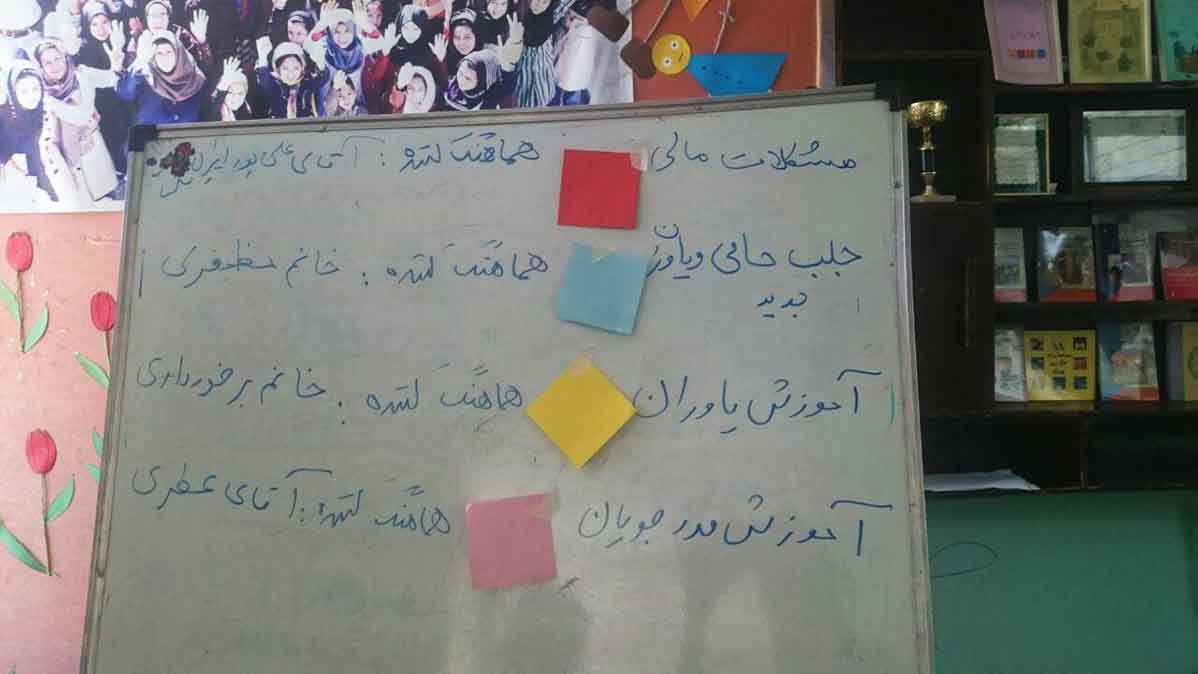 مشکلات مالی هماهنگ کننده : آقای علی پور ایران
جلب حامی و یاور هماهنگ کننده : خانم مظفری
جدید
آموزش یاوران هماهنگ کننده : خانم برخورداری
آموزش مددجویان هماهنگ کننده : آقای عطری